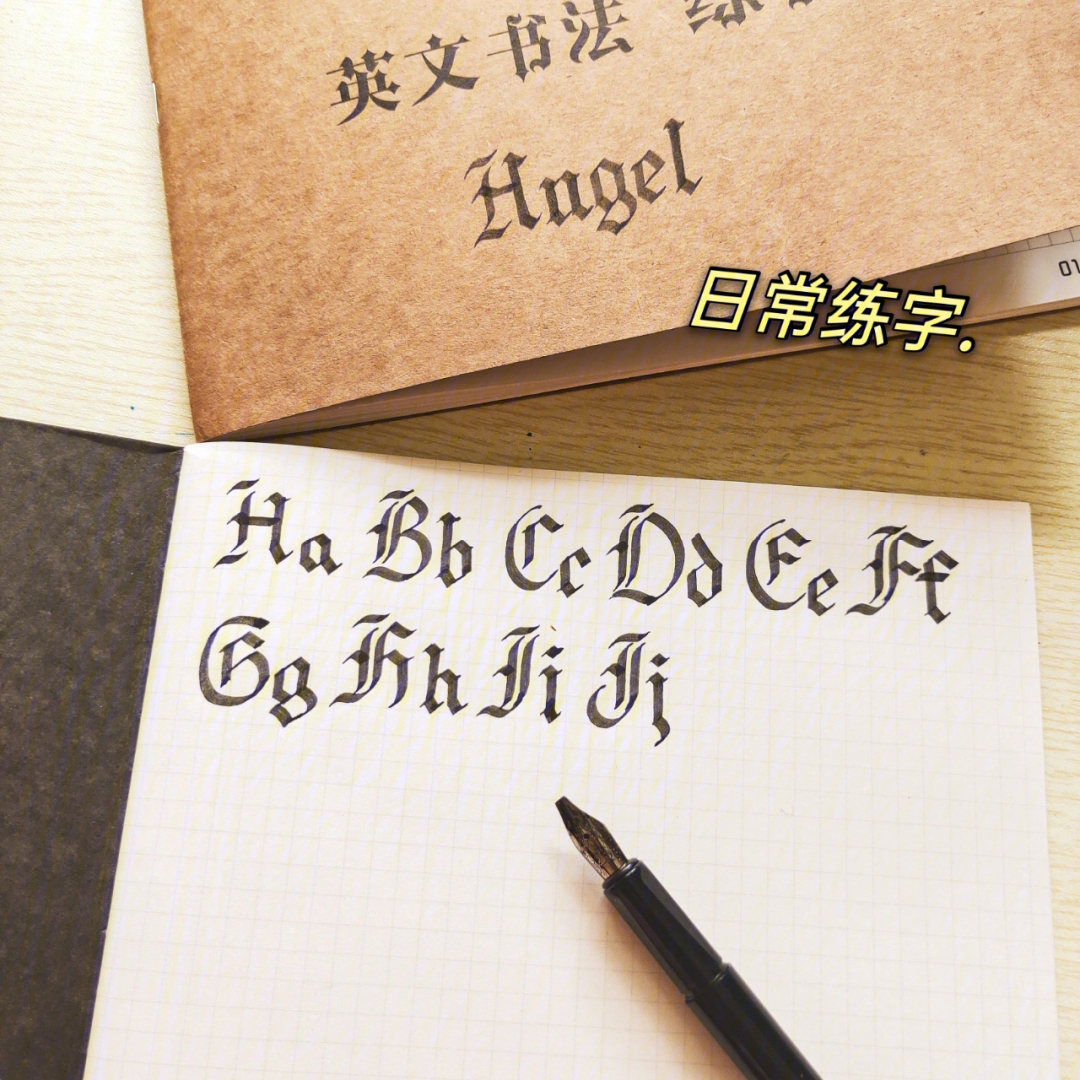 英文书法 练
Angel
01
日常练字.
Aa Bb Cc Dd Ee Ff
Gg Hh Ii Jj